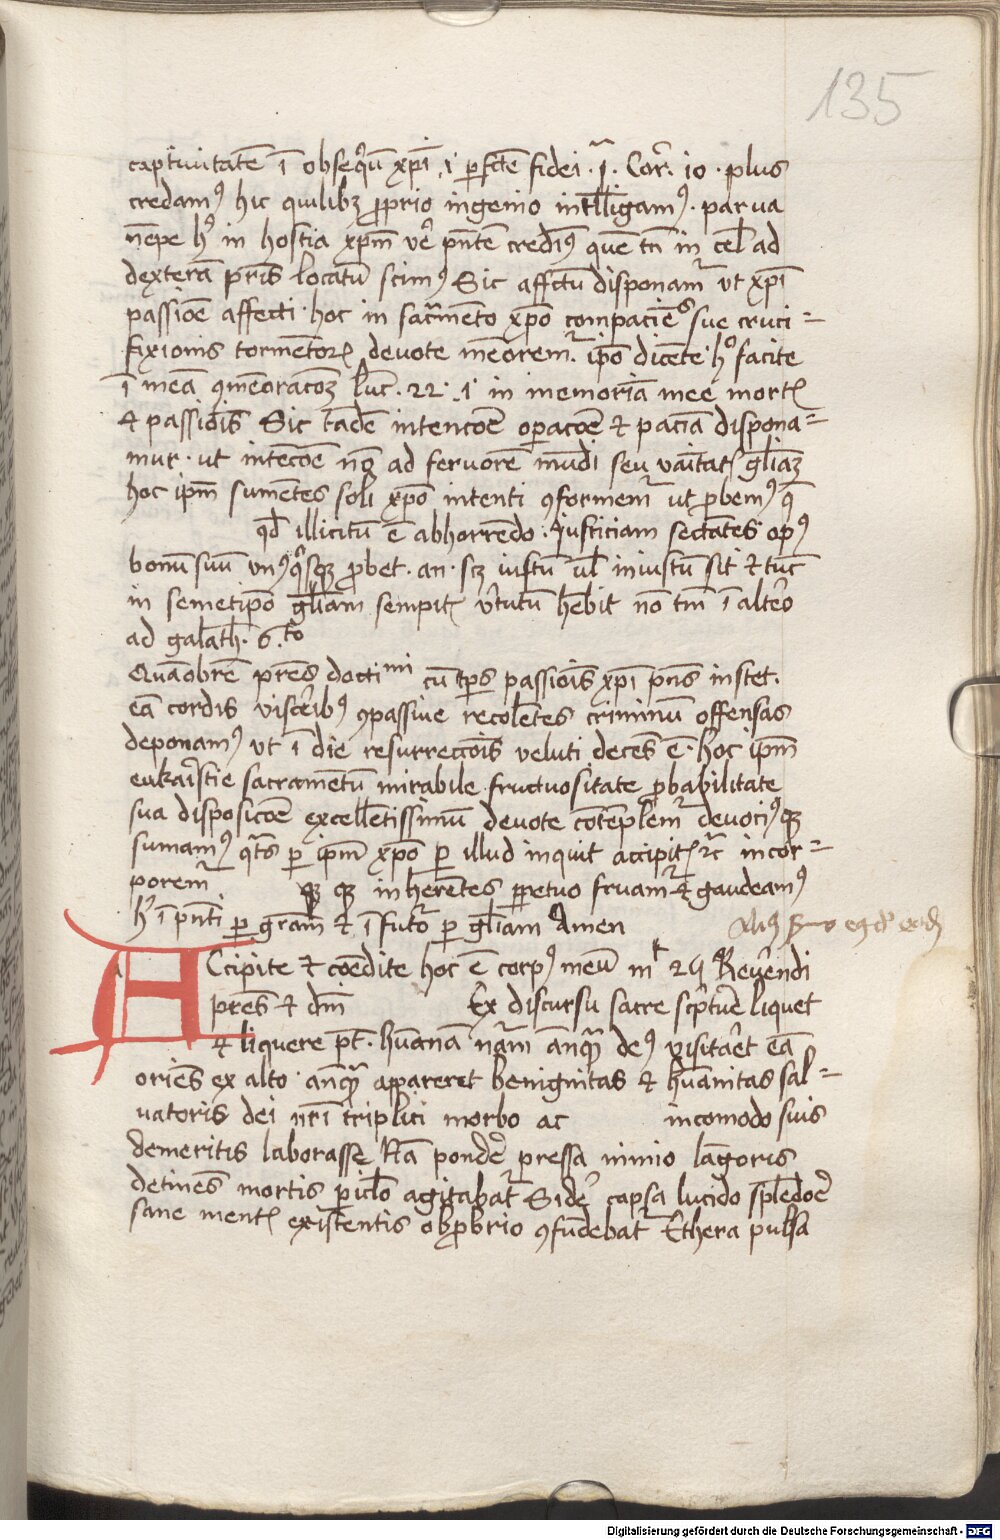 135
captiuitatē ī obseq̄ūm xp̄i .i. perfectē fidei .j. Cor̄. io . plus
credamꝰ hic quilibꝫ ꝓprio ingenio intelligamꝰ . parua
nēpe hꝰ in hostia xp̄m vē p̄ntē credimꝰ quē tn̄ in cel̄ ad
dexterā pr̄is locatū scimꝰ Sic affectū disponam̄ vt xp̄i
passiōe affecti . hoc in sacr̄mento xp̄o compaciētes sue cruci =
fixionis tormentoꝝ deuote memorem̄ . ip̄o dicēte hꝰ facite
ī meā ꝯmēoracōeꝫ Luc̄ . 22 . .i. in memoriā mee mortꝭ
et passiōis Sic tādē intencōē oꝑacōē et paciā dispona =
mur . ut intēcōē nō ad feruorē mūdi seu vaītatꝭ gl̄iaꝫ
hoc ip̄m sumētes soli xp̄o intenti ꝯformem̄ ut ꝓbemꝰ
qd̄ illicitū ē abhorrēdo . Justiciam sectātes opꝰ
bonū suū vnꝰqͥsqꝫ ꝓbet . an . scꝫ iustū ul̄ iniustū sit et tūc
in semetip̄o gl̄iam sempitꝭ v̄tutū hēbit nō tm̄ ī altēo
ad galath̄ . 6.to
Quāobrē pr̄es doctimi cū tp̄s passiōis xp̄i p̄ns instet .
eā cordis viscēibꝰ ꝯpassiue recolētes criminū offensas
deponamꝰ vt ī die resurreccōis veluti decēs ē . hoc ip̄m
eukaīstie sacramētū mirabile fructuositate ꝓbabilitate
sua disposicōē excellētissimū deuote cōtēplem̄ deuociꝰqꝫ
sumamꝰ qͣts ꝑ ip̄m xp̄o ꝑ illud inquit accipitꝭ ꝛc incor =
porem̄ qꝫ qꝫ inherētes ꝑpetuo fruam̄ et gaudeamꝰ
hͥ ī p̄nti ꝑ gram̄ et ī futō ꝑ gl̄iam Amen
ACcipite et cōedite hoc ē corpꝰ meū mt 26 Reuēndi
pr̄es et dn̄i Ex discursu sacre scptūe liquet
et liquere pt̄ . hūanā nām anqͣꝫ deꝰ visitāet eā
oriēs ex alto . anqͣꝫ appareret benignitas et hūanitas sal =
uatoris dei nr̄i triplici morbo ac incomodo suis
demeritis laborasse Nā pondē pressa nimio lāgoris
detinēs mortis piclo agitabat̄ Sidē capsa lucido splēdoē
sane mentꝭ existentis obꝓbrio ꝯfūdebat̄ Ethera pulsa
Digitalisierung gefördert durch die Deutsche Forschungsgemeinschaft - DFG